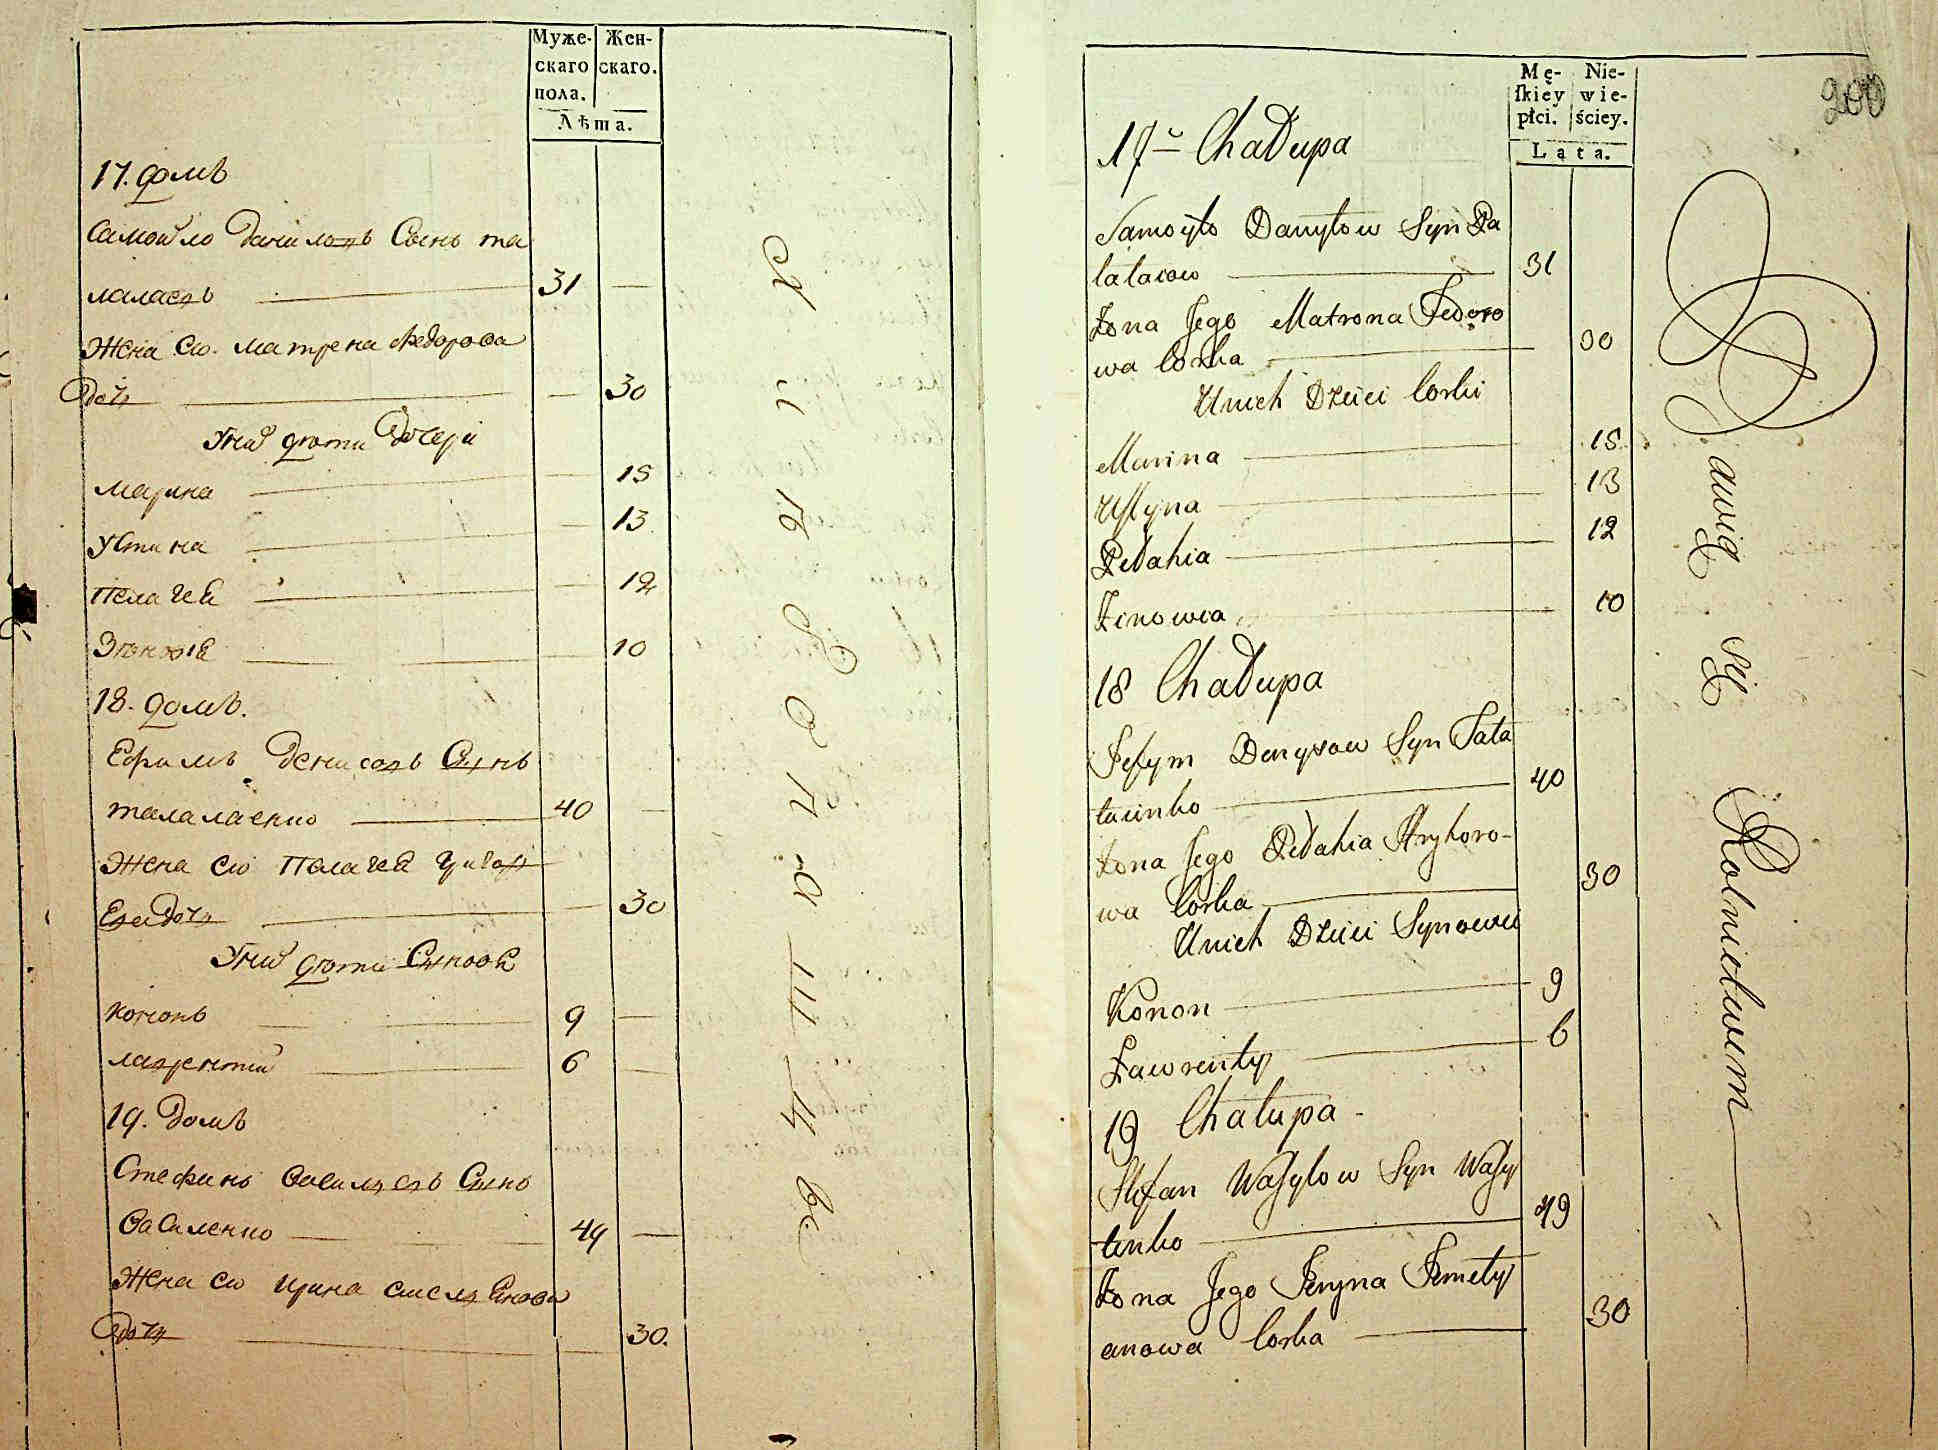 Муже-
скаго
пола.
Жен-
скаго.
Лѣта.
17. домъ
Самойло Даниловъ Сынъ та
лалаевъ 31
Жена его матрена Федорова
дочь 30
У них дѣти дочери
марина 15
Устина 13
Пелагея 12
Зѣновiя 10
18. домъ.
Ефимъ Денисовъ Сынъ
талалаенко 40
Жена его Пелагея Григор
Ева дочь 30
У них дѣти Сыновя
кононъ 9
лаврентий 6
19. домъ
Стефанъ василевъ Сынъ
Василенко 49
Жена его ирина емелянова
дочь 30.
Mę-
ſkiey
płci.
Nie-
wie-
ściey.
Lata.
200
17 Chałupa
Samoyło Danyłow Syn Ta
lalaiow 31
Żona Jego Matrona Fedoro
wa Corka 30
U nich Dzieci Corki
Marina 15
Uſtyna 13
Pelahia 12
Zinowia 10
18 Chałupa
Jefym Denysow Syn Tala
łaienko 40
Żona Jego Pelahia Hryhoro-
wa Corka 30
U nich Dzieci Synowie
Konon 9
Ławrenty 6
19 Chałupa
Stefan Waſylow Syn Waſy
lenko 49
Żona Jego Jeryna Jemely
anowa Corka 30
Bawią się Rolnictwem